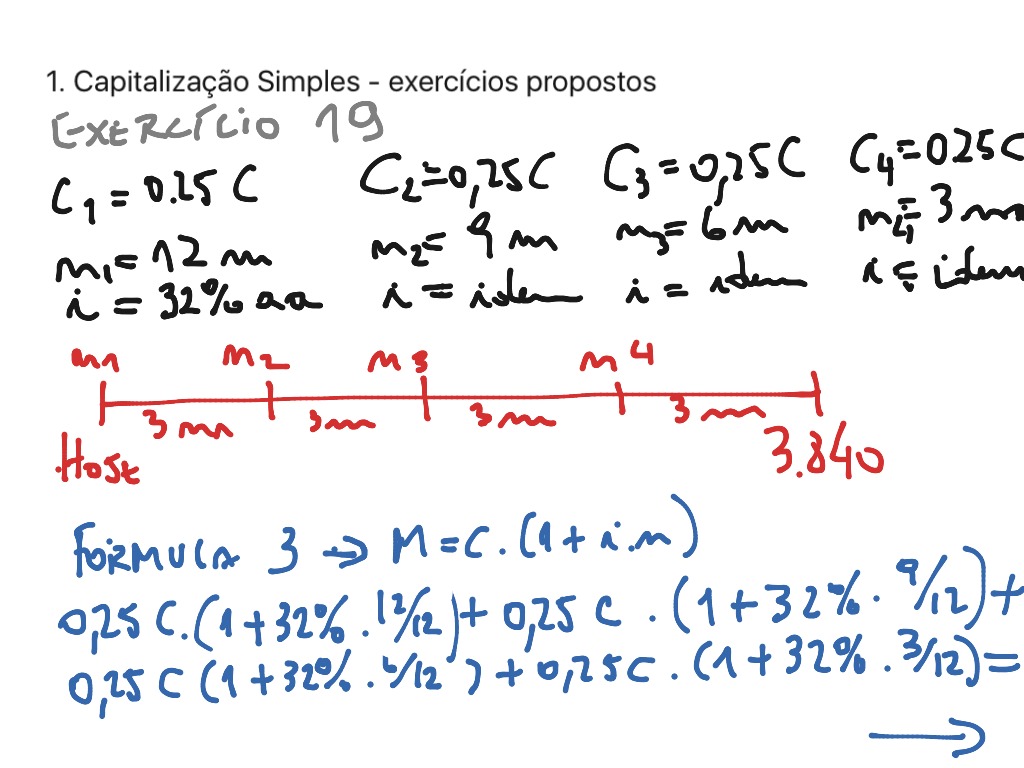 1. Capitalização Simples - exercícios propostos
EXERCÍCIO 19
C1 = 0.25 C C2 = 0,25C C3 = 0,25C C4 = 025C
m1 = 12 m m2 = 9 m m3 = 6m m4 = 3 m
i = 32% aa i = idem i = idem i = idem
m1 m2 m3 m4
3 m 3 m 3 m 3 m
HOJE 3.840
FÓRMULA 3 → M = C . (1 + i.n)
0,25 C.(1 + 32% . 12/12) + 0,25 C . (1 + 32% . 9/12) +
0,25 C (1 + 32% . 6/12) + 0,25C . (1 + 32% . 3/12) =
→